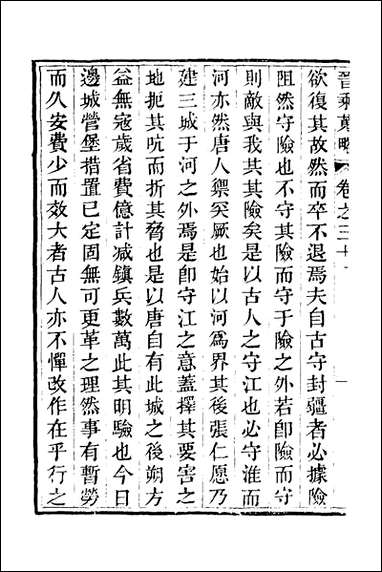 晉乘蒐略 卷之三十
欲復其故然而卒不退焉夫自古守封疆者必據險
阻然守險也不守其險而守于險之外若卽險而守
則敵與我共其險矣是以古人之守江也必守淮而
河亦然唐人禦突厥也始以河爲界其後張仁愿乃
建三城于河之外焉是卽守江之意蓋擇其要害之
地扼其吭而折其脅也是以唐自有此城之後朔方
益無寇歲省費億計減鎮兵數萬此其明驗也今日
邊城營堡措置已定固無可更革之理然事有暫勞
而久安費少而效大者古人亦不憚改作在乎行之